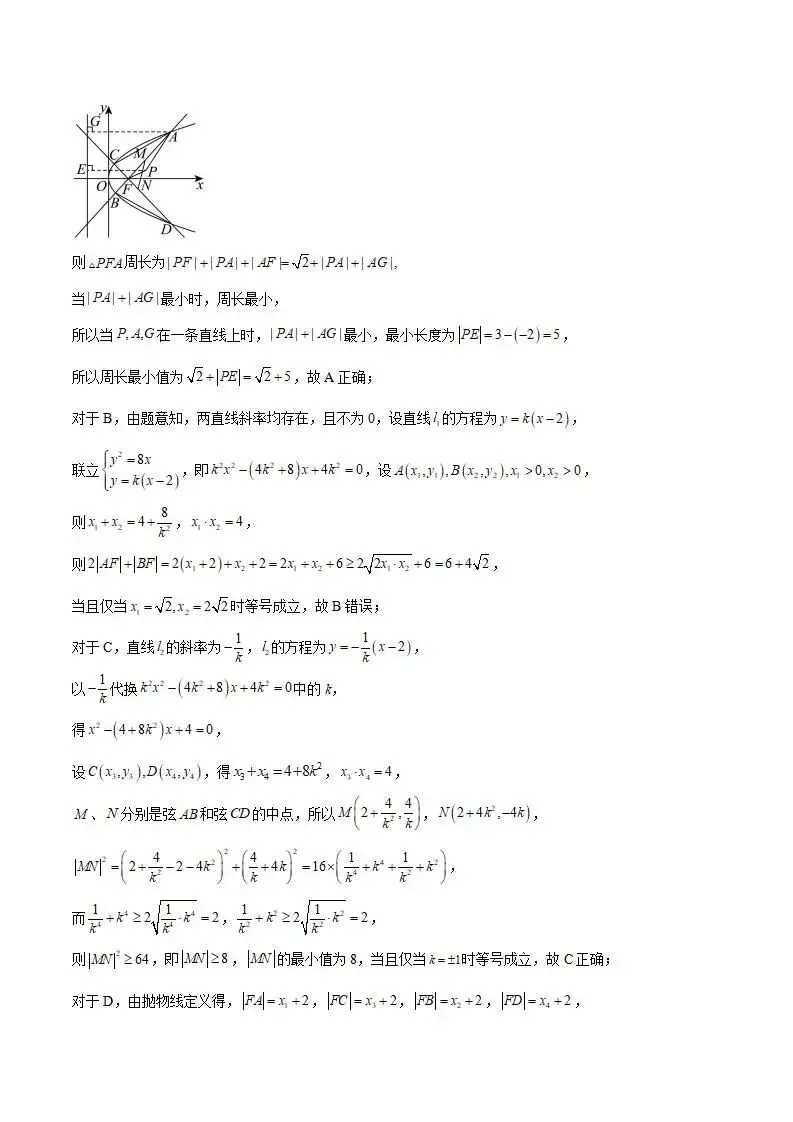 y
G
A
C
M
E
P
O
F
N
x
B
D
则△PFA周长为|PF|+|PA|+|AF|=√2+|PA|+|AG|,
当|PA|+|AG|最小时，周长最小，
所以当P,A,G在一条直线上时，|PA|+|AG|最小，最小长度为|PE|=3-(-2)=5，
所以周长最小值为√2+|PE|=√2+5，故A正确；
对于B，由题意知，两直线斜率均存在，且不为0，设直线l₁的方程为y=k(x-2)，
联立{y²=8x y=k(x-2)，即k²x²-(4k²+8)x+4k²=0，设A(x₁,y₁),B(x₂,y₂),x₁>0,x₂>0，
则x₁+x₂=4+8/k²，x₁·x₂=4，
则2|AF|+|BF|=2(x₁+2)+x₂+2=2x₁+x₂+6≥2√(2x₁·x₂)+6=6+4√2，
当且仅当x₁=√2,x₂=2√2时等号成立，故B错误；
对于C，直线l₂的斜率为-1/k，l₂的方程为y=-1/k(x-2)，
以-1/k代换k²x²-(4k²+8)x+4k²=0中的k，
得x²-(4+8k²)x+4=0，
设C(x₃,y₃),D(x₄,y₄)，得x₃+x₄=4+8k²，x₃·x₄=4，
M、N分别是弦AB和弦CD的中点，所以M(2+4/k²,4/k)，N(2+4k²,-4k)，
|MN|²=(2+4/k²-2-4k²)²+(4/k+4k)²=16×(1/k⁴+k⁴+1/k²+k²)，
而1/k⁴+k⁴≥2√(1/k⁴·k⁴)=2，1/k²+k²≥2√(1/k²·k²)=2，
则|MN|²≥64，即|MN|≥8，|MN|的最小值为8，当且仅当k=±1时等号成立，故C正确；
对于D，由抛物线定义得，|FA|=x₁+2，|FC|=x₃+2，|FB|=x₂+2，|FD|=x₄+2，